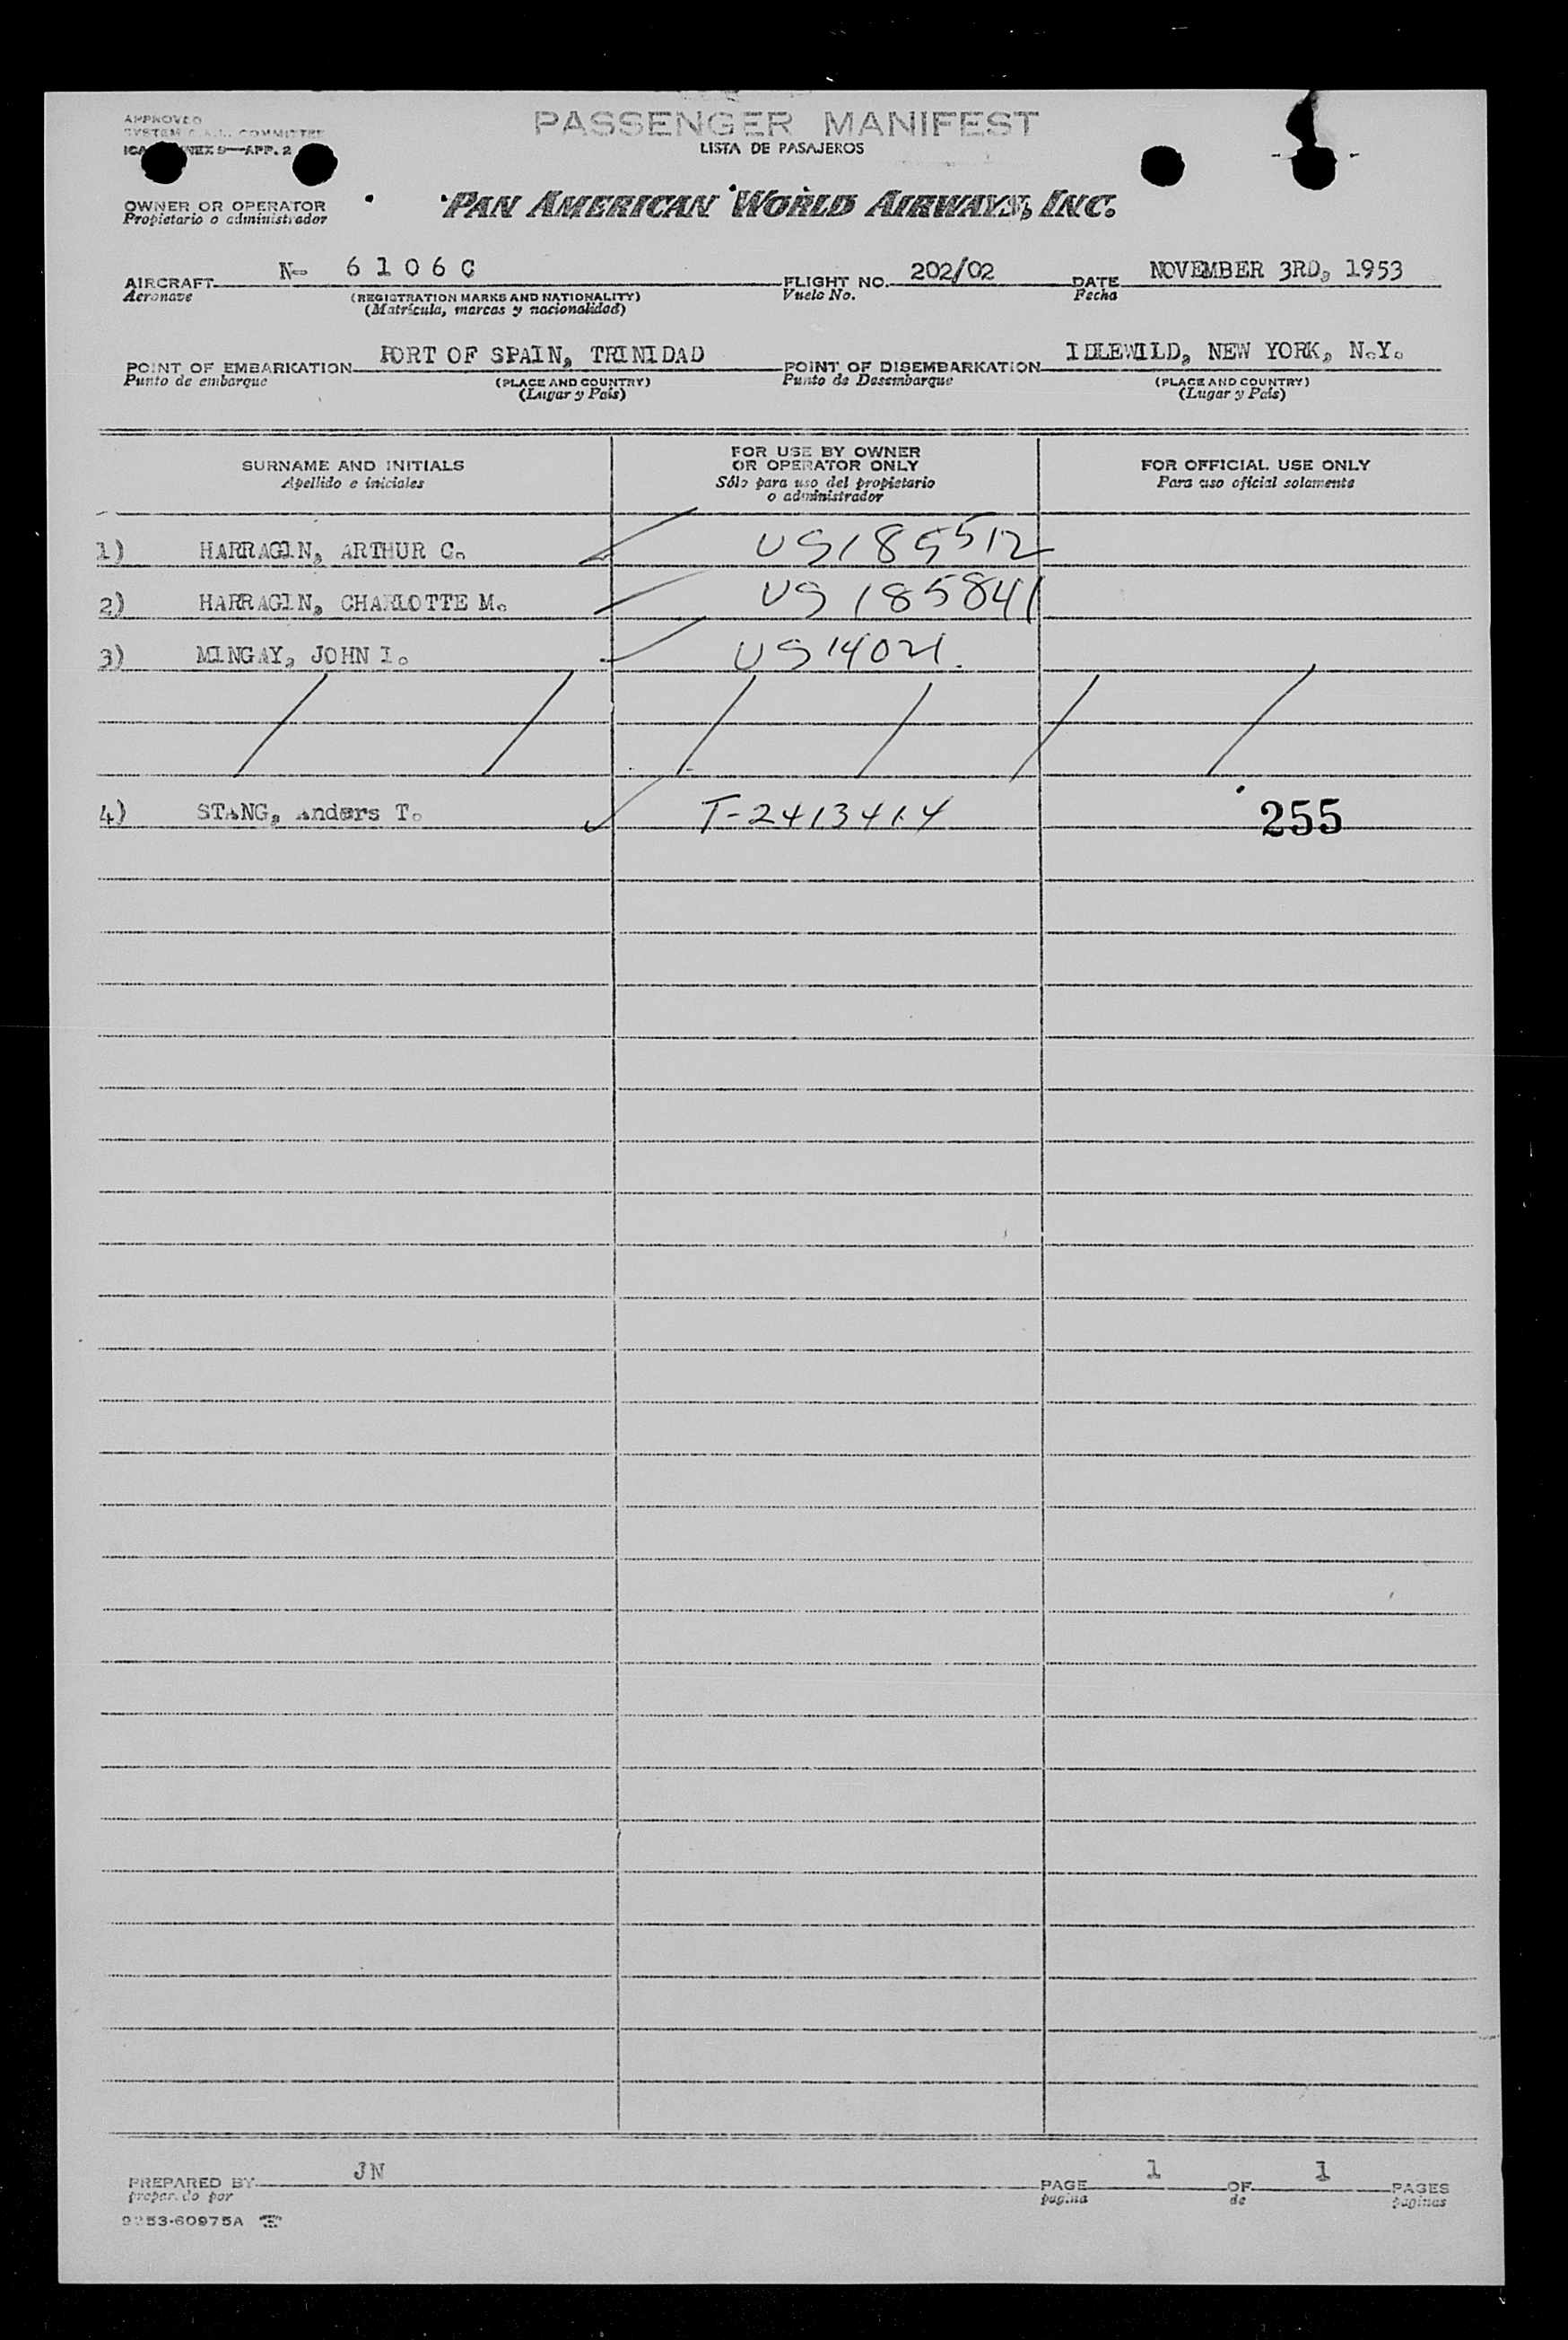 APPROVED
SYSTEM COMMITTEE
APP. 2
PASSENGER MANIFEST
LISTA DE PASAJEROS
OWNER OR OPERATOR
Propietario o administrador
PAN AMERICAN WORLD AIRWAYS, INC.
AIRCRAFT N- 6 1 0 6 C FLIGHT NO. 202/02 DATE NOVEMBER 3RD, 1953
Aeronave (REGISTRATION MARKS AND NATIONALITY) Vuelo No. Fecha
(Matrícula, marcas y nacionalidad)
POINT OF EMBARKATION PORT OF SPAIN, TRINIDAD POINT OF DISEMBARKATION IDLEWILD, NEW YORK, N.Y.
Punto de embarque (PLACE AND COUNTRY) Punto de Desembarque (PLACE AND COUNTRY)
(Lugar y País) (Lugar y País)
SURNAME AND INITIALS
Apellido e iniciales
FOR USE BY OWNER
OR OPERATOR ONLY
Sólo para uso del propietario
o administrador
FOR OFFICIAL USE ONLY
Para uso oficial solamente
1) HARRAGIN, ARTHUR C. US185512
2) HARRAGIN, CHARLOTTE M. US 185841
3) MINGAY, JOHN I.
4) STANG, Anders T. T-2413414 255
PREPARED BY JN PAGE 1 OF 1 PAGES
preparado por pagina de paginas